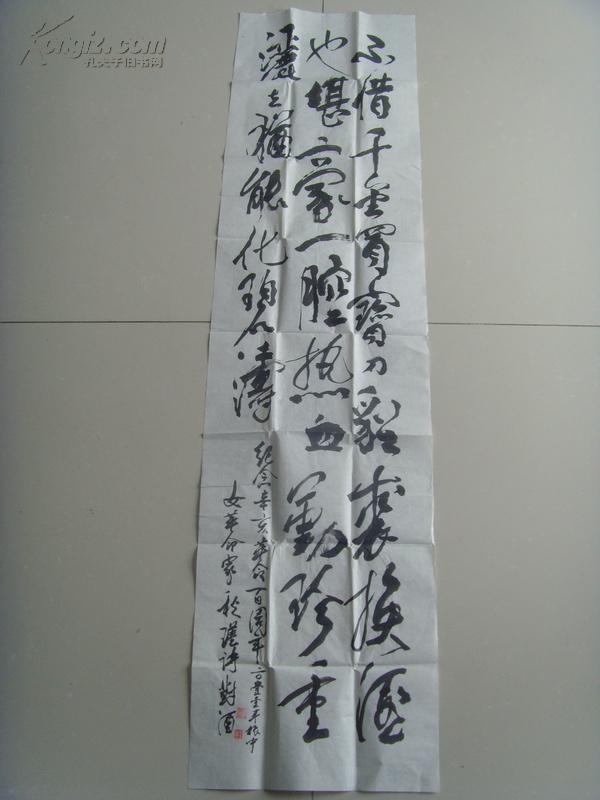 Kongfz.com
孔夫子旧书网
不惜千金買寶刀貂裘換酒
也堪豪一腔热血勤珍重
灑去猶能化碧濤
紀念辛亥革命百周年二〇壹壹年
女革命家秋瑾诗對酒